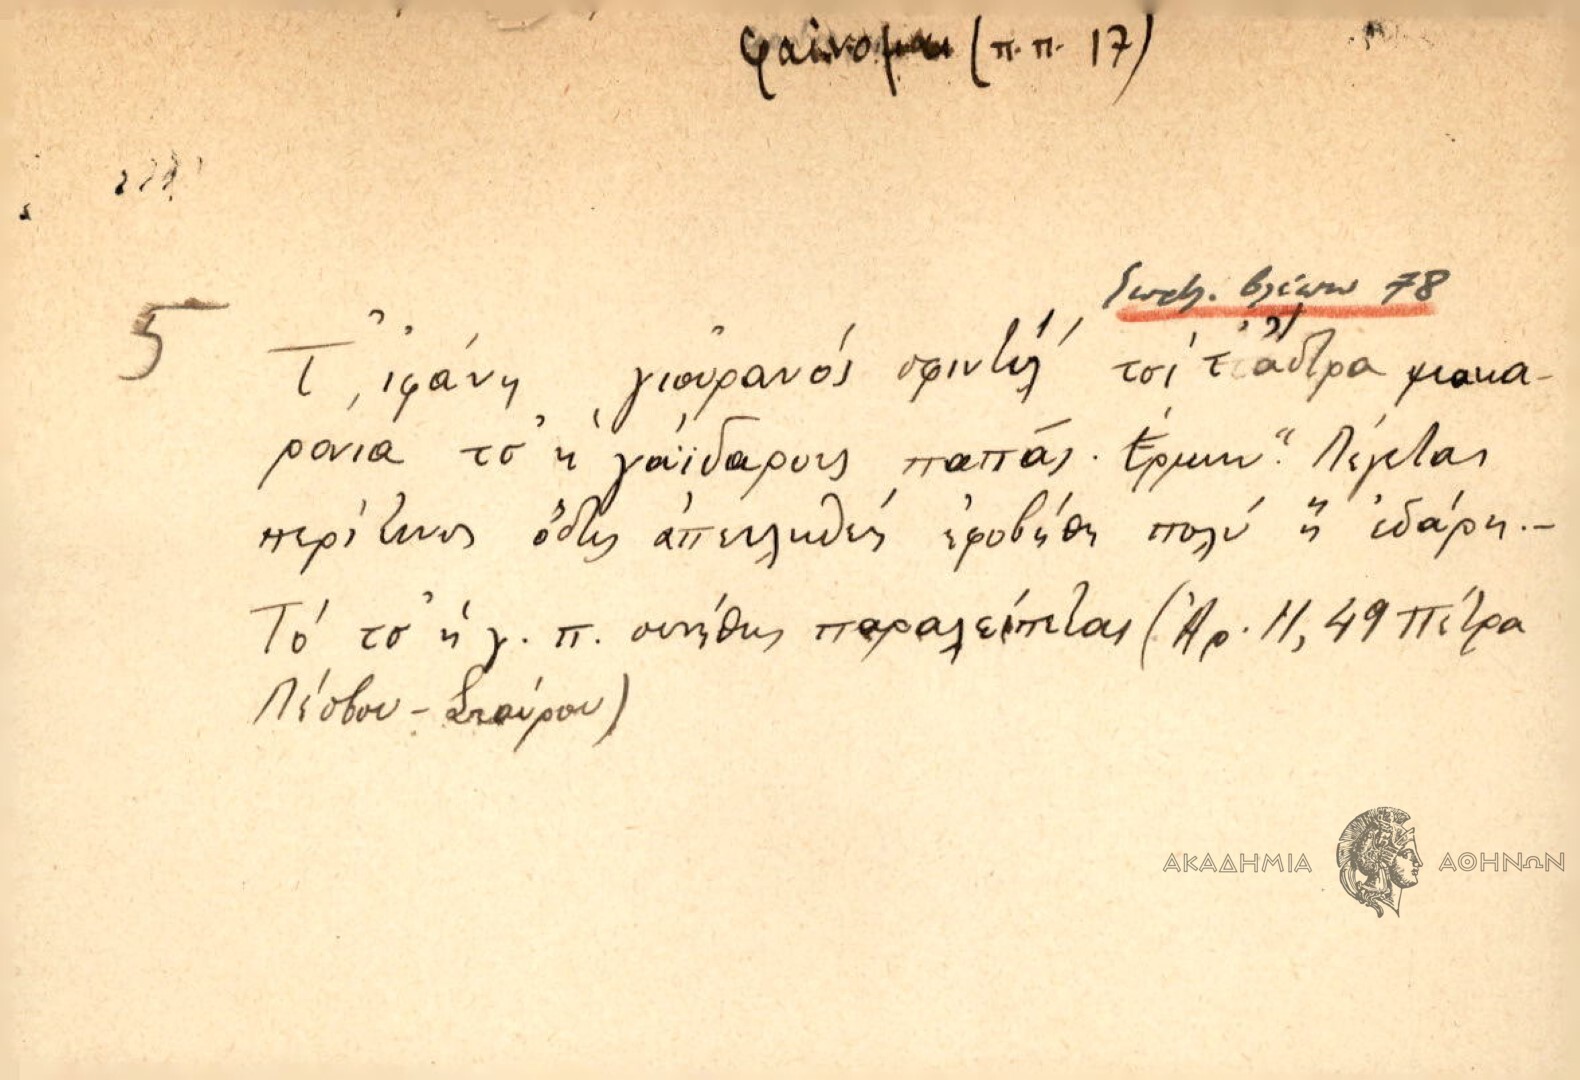 φαίνομαι (π.π. 17)
βλέπω 78
5 Τ' ἰφάνη γιοὐρανός σφιντύλ' τσί τ' ἄστρα μακα-
ρόνια τσ' ἡ γάϊδαρους παπάς. Ἑρμην. Λέγεται
περί τινος ὅστις ἀπειληθείς ἐφοβήθη πολύ ἤ ἐδάρη.-
Τό τσ' ἡ γ. π. συνήθως παραλείπεται (Ἀρ. 11, 49 Πέτρα
Λέσβου - Σταύρου)
ΑΚΑΔΗΜΙΑ ΑΘΗΝΩΝ